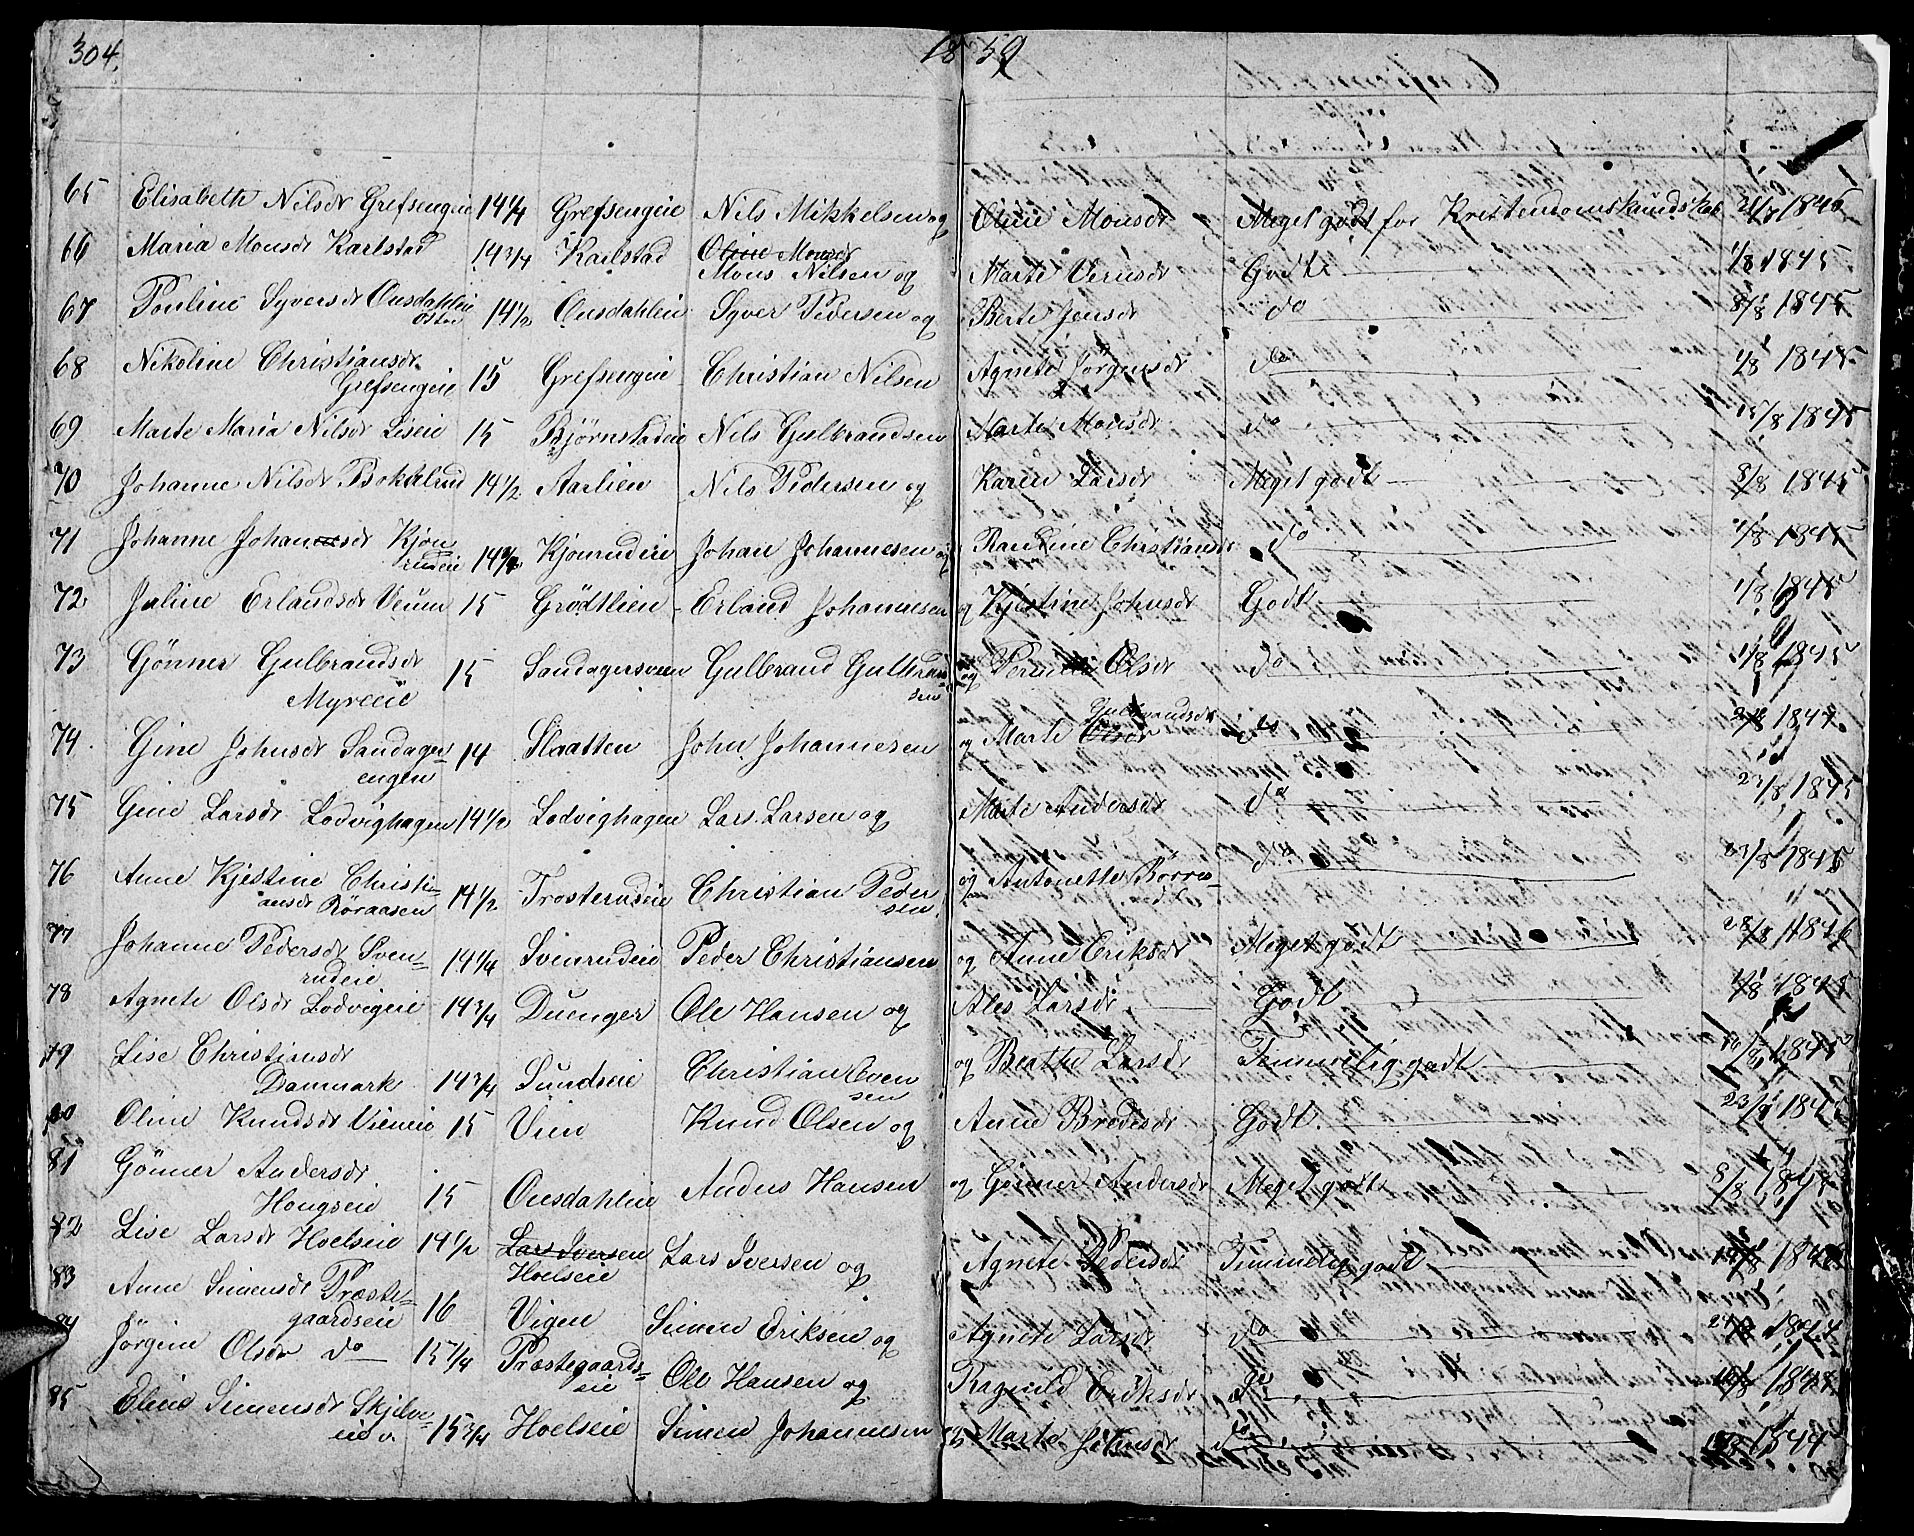 304.
1859
65 Elisabeth Nilsdr Grefsengeie 14 1/4 Grefsengeie Nils Mikkelsen og Oline Monsdr Meget godt for Kristendomskundskab 1846
66 Maria Monsdr Karlstad 14 3/4 Karlstad Oline Monsdr
Mons Nilsen og Marte Iversdr Godt 1/8 1845
67 Pouline Syversdr Ousdahleie
østre 14 1/2 Ousdahleie Syver Pedersen og Berte Jensdr do 8/8 1845
68 Nikoline Christiansdr
Grefsengeie 15 Grefsengeie Christian Nilsen Agnete Jørgensdr do 1/8 1845
69 Marte Maria Nilsdr Liseie 15 Bjørnstadeie Nils Gulbrandsen Marte Monsdr do 15/8 1845
70 Johanne Nilsdr Bokkelrud 14 1/2 Aarlien Nils Pedersen og Karen Larsdr Meget godt 8/8 1845
71 Johanne Johannesdr Kjøn-
rudeie 14 3/4 Kjønrudeie Johan Johannesen og Pauline Christiansdr do 1/8 1845
72 Juline Erlandsdr Veum 15 Grødtlien Erland Johannesen og Kjestine Johnsdr Godt 1/8 1845
73 Gønner Gulbrandsdr
Myreeie 15 Sandagersveen Gulbrand Gulbrand-
sen og Pernille Olsdr do 1/8 1845
74. Gine Johnsdr Sandager-
engen 14 Slaatten John Johannesen og Marte Olsdr
Gulbrandsdr do 1844.
75 Gine Larsdr Lodvighagen 14 1/2 Lodvighagen Lars Larsen og Marte Andersdr do 23/8 1845
76 Anne Kjestine Christi-
ansdr Røraasen 14 1/2 Trosterudeie Christian Peder
sen og Antonette Børres-
dr do 23/8 1845
77 Johanne Pedersdr Sven-
rudeie 14 1/4 Svenrudeie Peder Christiansen og Anne Eriksdr Meget godt 28/8 1846
78 Agnete Olsdr Lodvigeie 14 3/4 Duenger Ole Hansen og Ales Larsdr Godt 1/8 1845
79 Lise Christiansdr
Danmark 14 3/4 Sundseie Christian Even
sen og Beathe Larsdr Temmelig godt 1845
80 Oline Knudsdr Vieneie 15 Vien Knud Olsen og Anne Bredesdr Godt. 1845
81 Gønner Andersdr
Hougseie 15 Ousdahleie Anders Hansen og Gønner Andersdr Meget godt 8/8 1845
82 Lise Larsdr Hoelseie 14 1/2 Lars Iversen
Hoelseie Lars Iversen og Agnete Pedersdr Temmelig godt
83 Anne Simensdr Præste-
gaardseie 16 Vigen Simen Eriksen og Agnete Larsdr do
84 Jørgine Olsdr do 15 1/4 Præstegaards-
eie Ole Hansen og Ragnild Eriksdr do
85 Eline Simensdr 15 3/4 Hoelseie Simen Johannesen og Marte Johnsdr do 1844